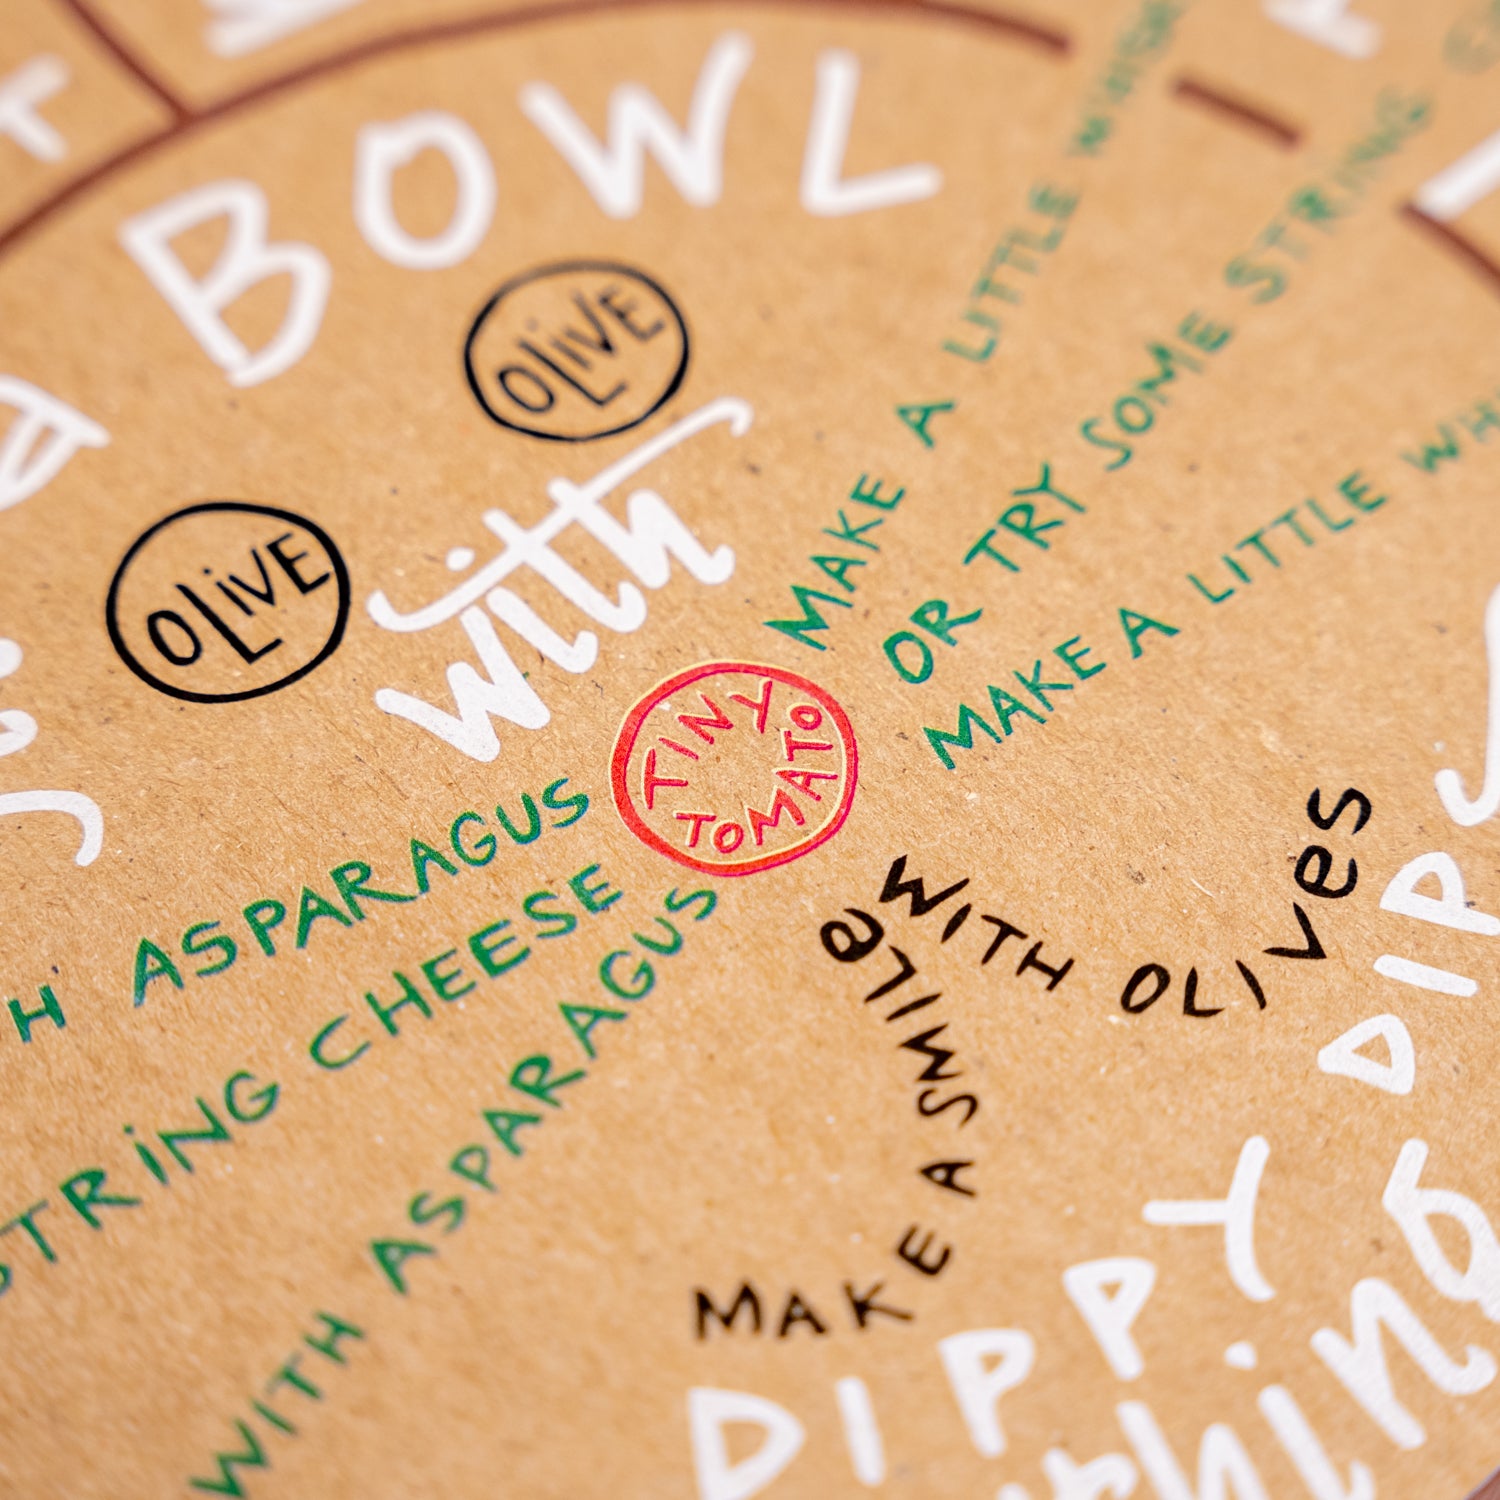 BOWL
OLiVE
OLiVE
with
TINY
TOMATO
MAKE A LITTLE WHISK
OR TRY SOME STRING
MAKE A LITTLE
ASPARAGUS
STRING CHEESE
WITH ASPARAGUS
WITH OLIVes
MAKE A SMILe
DIPPY
DIP